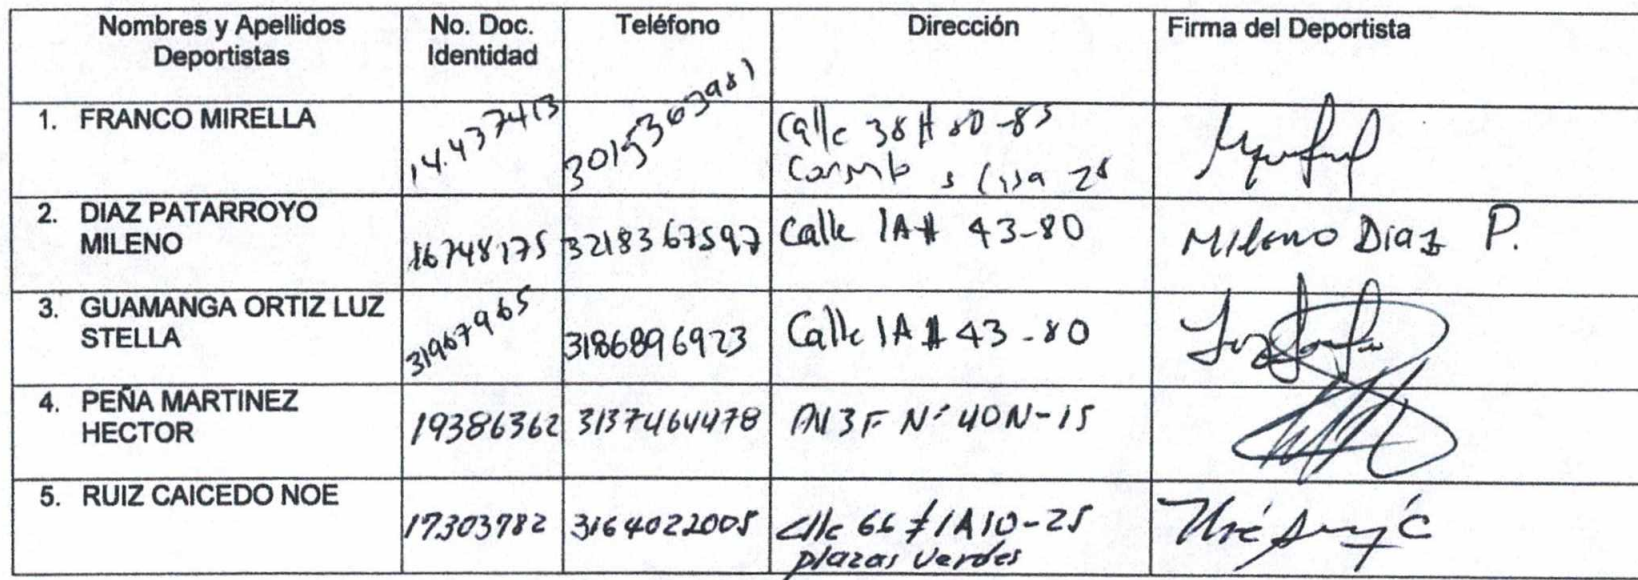 Nombres y Apellidos Deportistas No. Doc. Identidad Teléfono Dirección Firma del Deportista
1. FRANCO MIRELLA 14.437413 3015363981 Calle 38 # 80-85
2. DIAZ PATARROYO MILENO 16748175 3218367597 Calle 1A# 43-80 Mileno Diaz P.
3. GUAMANGA ORTIZ LUZ STELLA 31967965 3186896923 Calle 1A # 43-80
4. PEÑA MARTINEZ HECTOR 19386362 3137464478 AV3F N° 40N-15
5. RUIZ CAICEDO NOE 17303782 3164022005 Clle 66 # 1A10-25
plazas Verdes